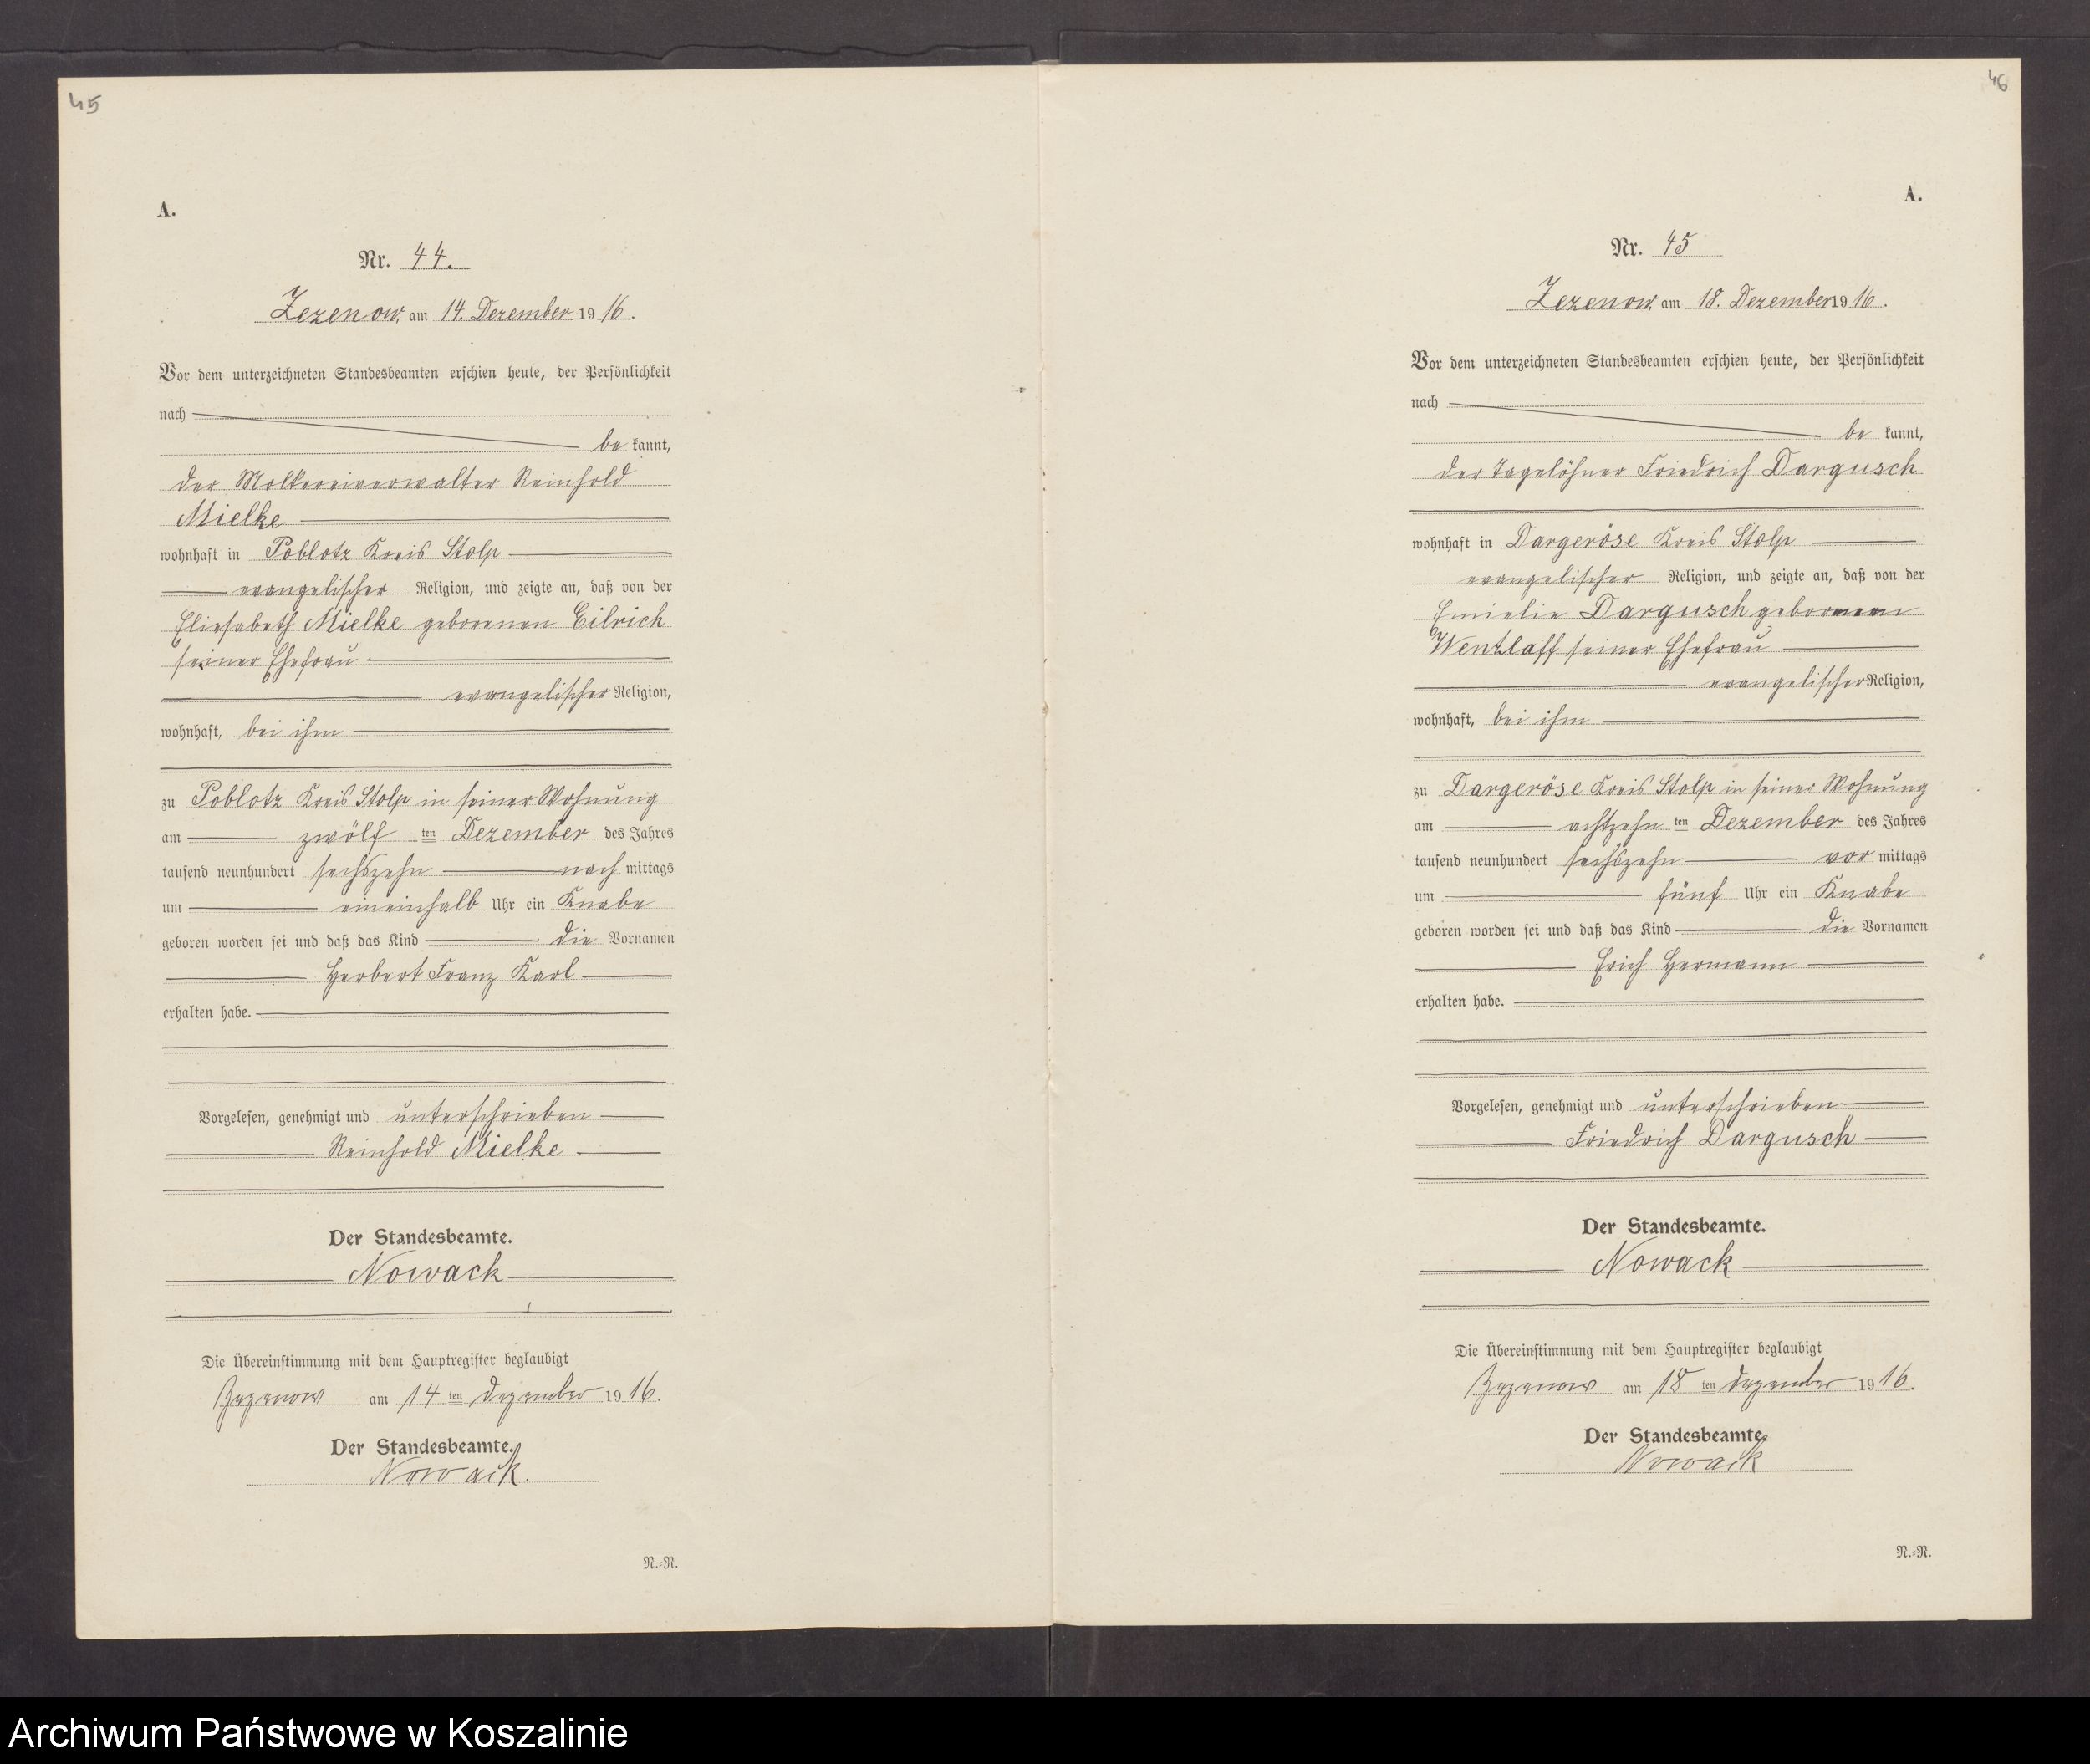 45
A.
Nr. 44.
Zezenow, am 14. Dezember 1916.
Vor dem unterzeichneten Standesbeamten erschien heute, der Persönlichkeit
nach
be kannt,
der Molkereiverwalter Reinhold
Mielke
wohnhaft in Poblotz Kreis Stolp
evangelischer Religion, und zeigte an, daß von der
Eliesabeth Mielke geborenen Eilrich
seiner Ehefrau
evangelischer Religion,
wohnhaft, bei ihm
zu Poblotz Kreis Stolp in seiner Wohnung
am zwölf ten Dezember des Jahres
tausend neunhundert sechszehn nach mittags
um eineinhalb Uhr ein Knabe
geboren worden sei und daß das Kind die Vornamen
Herbert Franz Karl
erhalten habe.
Vorgelesen, genehmigt und unterschrieben
Reinhold Mielke
Der Standesbeamte.
Nowack
Die Übereinstimmung mit dem Hauptregister beglaubigt
Zezenow am 14 ten Dezember 1916.
Der Standesbeamte.
Nowack.
N.=R.
46
A.
Nr. 45
Zezenow, am 18. Dezember 1916.
Vor dem unterzeichneten Standesbeamten erschien heute, der Persönlichkeit
nach
be kannt,
der Tagelöhner Friedrich Dargusch
wohnhaft in Dargeröse Kreis Stolp
evangelischer Religion, und zeigte an, daß von der
Emielie Dargusch geborenen
Wentzlaff seiner Ehefrau
evangelischer Religion,
wohnhaft, bei ihm
zu Dargeröse Kreis Stolp in seiner Wohnung
am achtzehn ten Dezember des Jahres
tausend neunhundert sechszehn vor mittags
um fünf Uhr ein Knabe
geboren worden sei und daß das Kind die Vornamen
Erich Hermann
erhalten habe.
Vorgelesen, genehmigt und unterschrieben
Friedrich Dargusch
Der Standesbeamte.
Nowack
Die Übereinstimmung mit dem Hauptregister beglaubigt
Zezenow am 18 ten Dezember 1916.
Der Standesbeamte.
Nowack
N.=R.
Archiwum Państwowe w Koszalinie